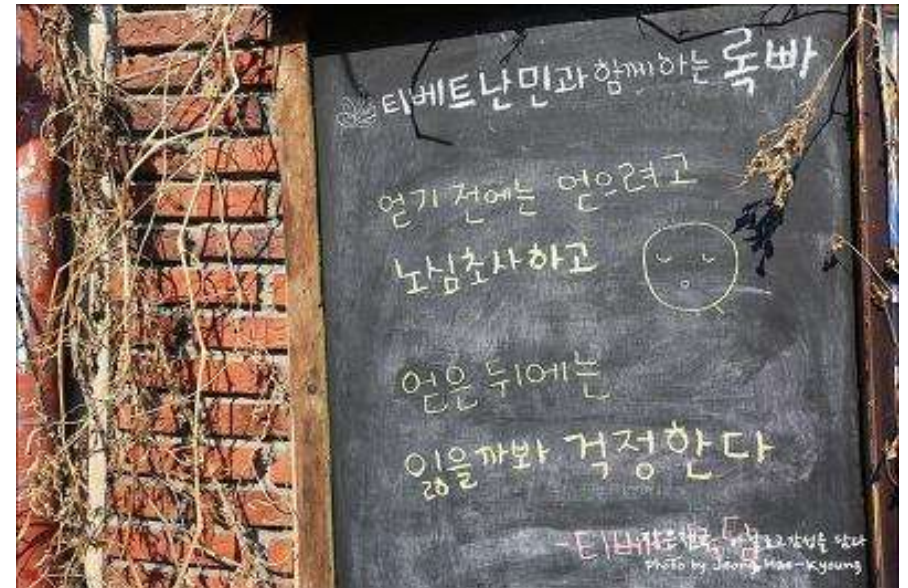 티베트난민과 함께하는 록빠
얻기 전에는 얻으려고
노심초사하고
얻은 뒤에는
잃을까봐 걱정한다
-티베
Photo by Jeong Hae-Kyoung